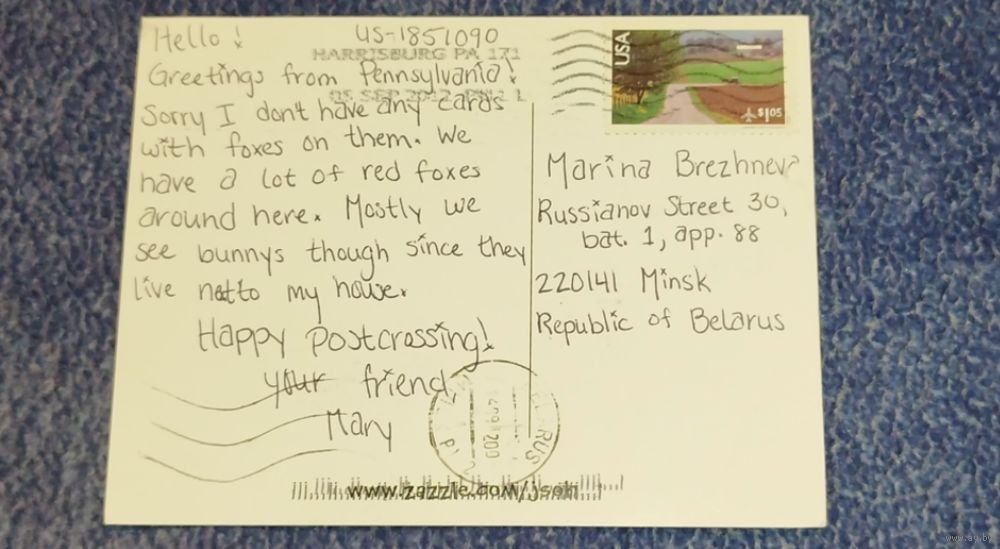 Hello!
US-1851090
HARRISBURG PA 171
Greetings from Pennsylvania!
05 SEP 2012 PM 1 L
Sorry I dont have any cards
with foxes on them. We
have a lot of red foxes
around here. Mostly we
see bunnys though since they
live to my house.
Happy Postcrossing!
your friend,
Mary
USA
$1.05
Marina Brezhneva
Russianov Street 30,
bat. 1, app. 88
220141 Minsk
Republic of Belarus
RUS
www.zazzle.com/
www.ay.by